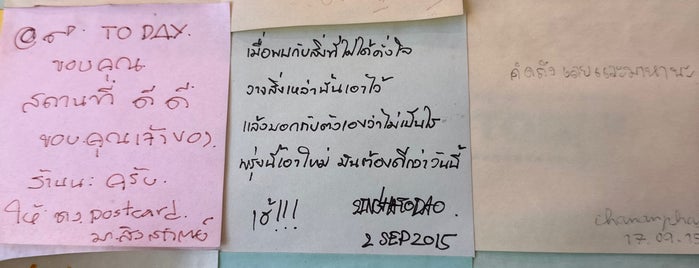 @ด. TO DAY.
ขอบคุณ
สถานที่ ดี ดี
ขอบคุณเจ้าของ.
ร้านนะครับ.
ให้ postcard.
เมื่อพบกับสิ่งที่ไม่ได้ตั้งใจ
วางสิ่งเหล่านั้นเอาไว้
แล้วบอกกับตัวเองว่าไม่เป็นไร
พรุ่งนี้เอาใหม่ มันต้องดีกว่าวันนี้
เย้!!!
2 SEP 2015
คิดถึงเลยแวะมาหานะ
17.09.15